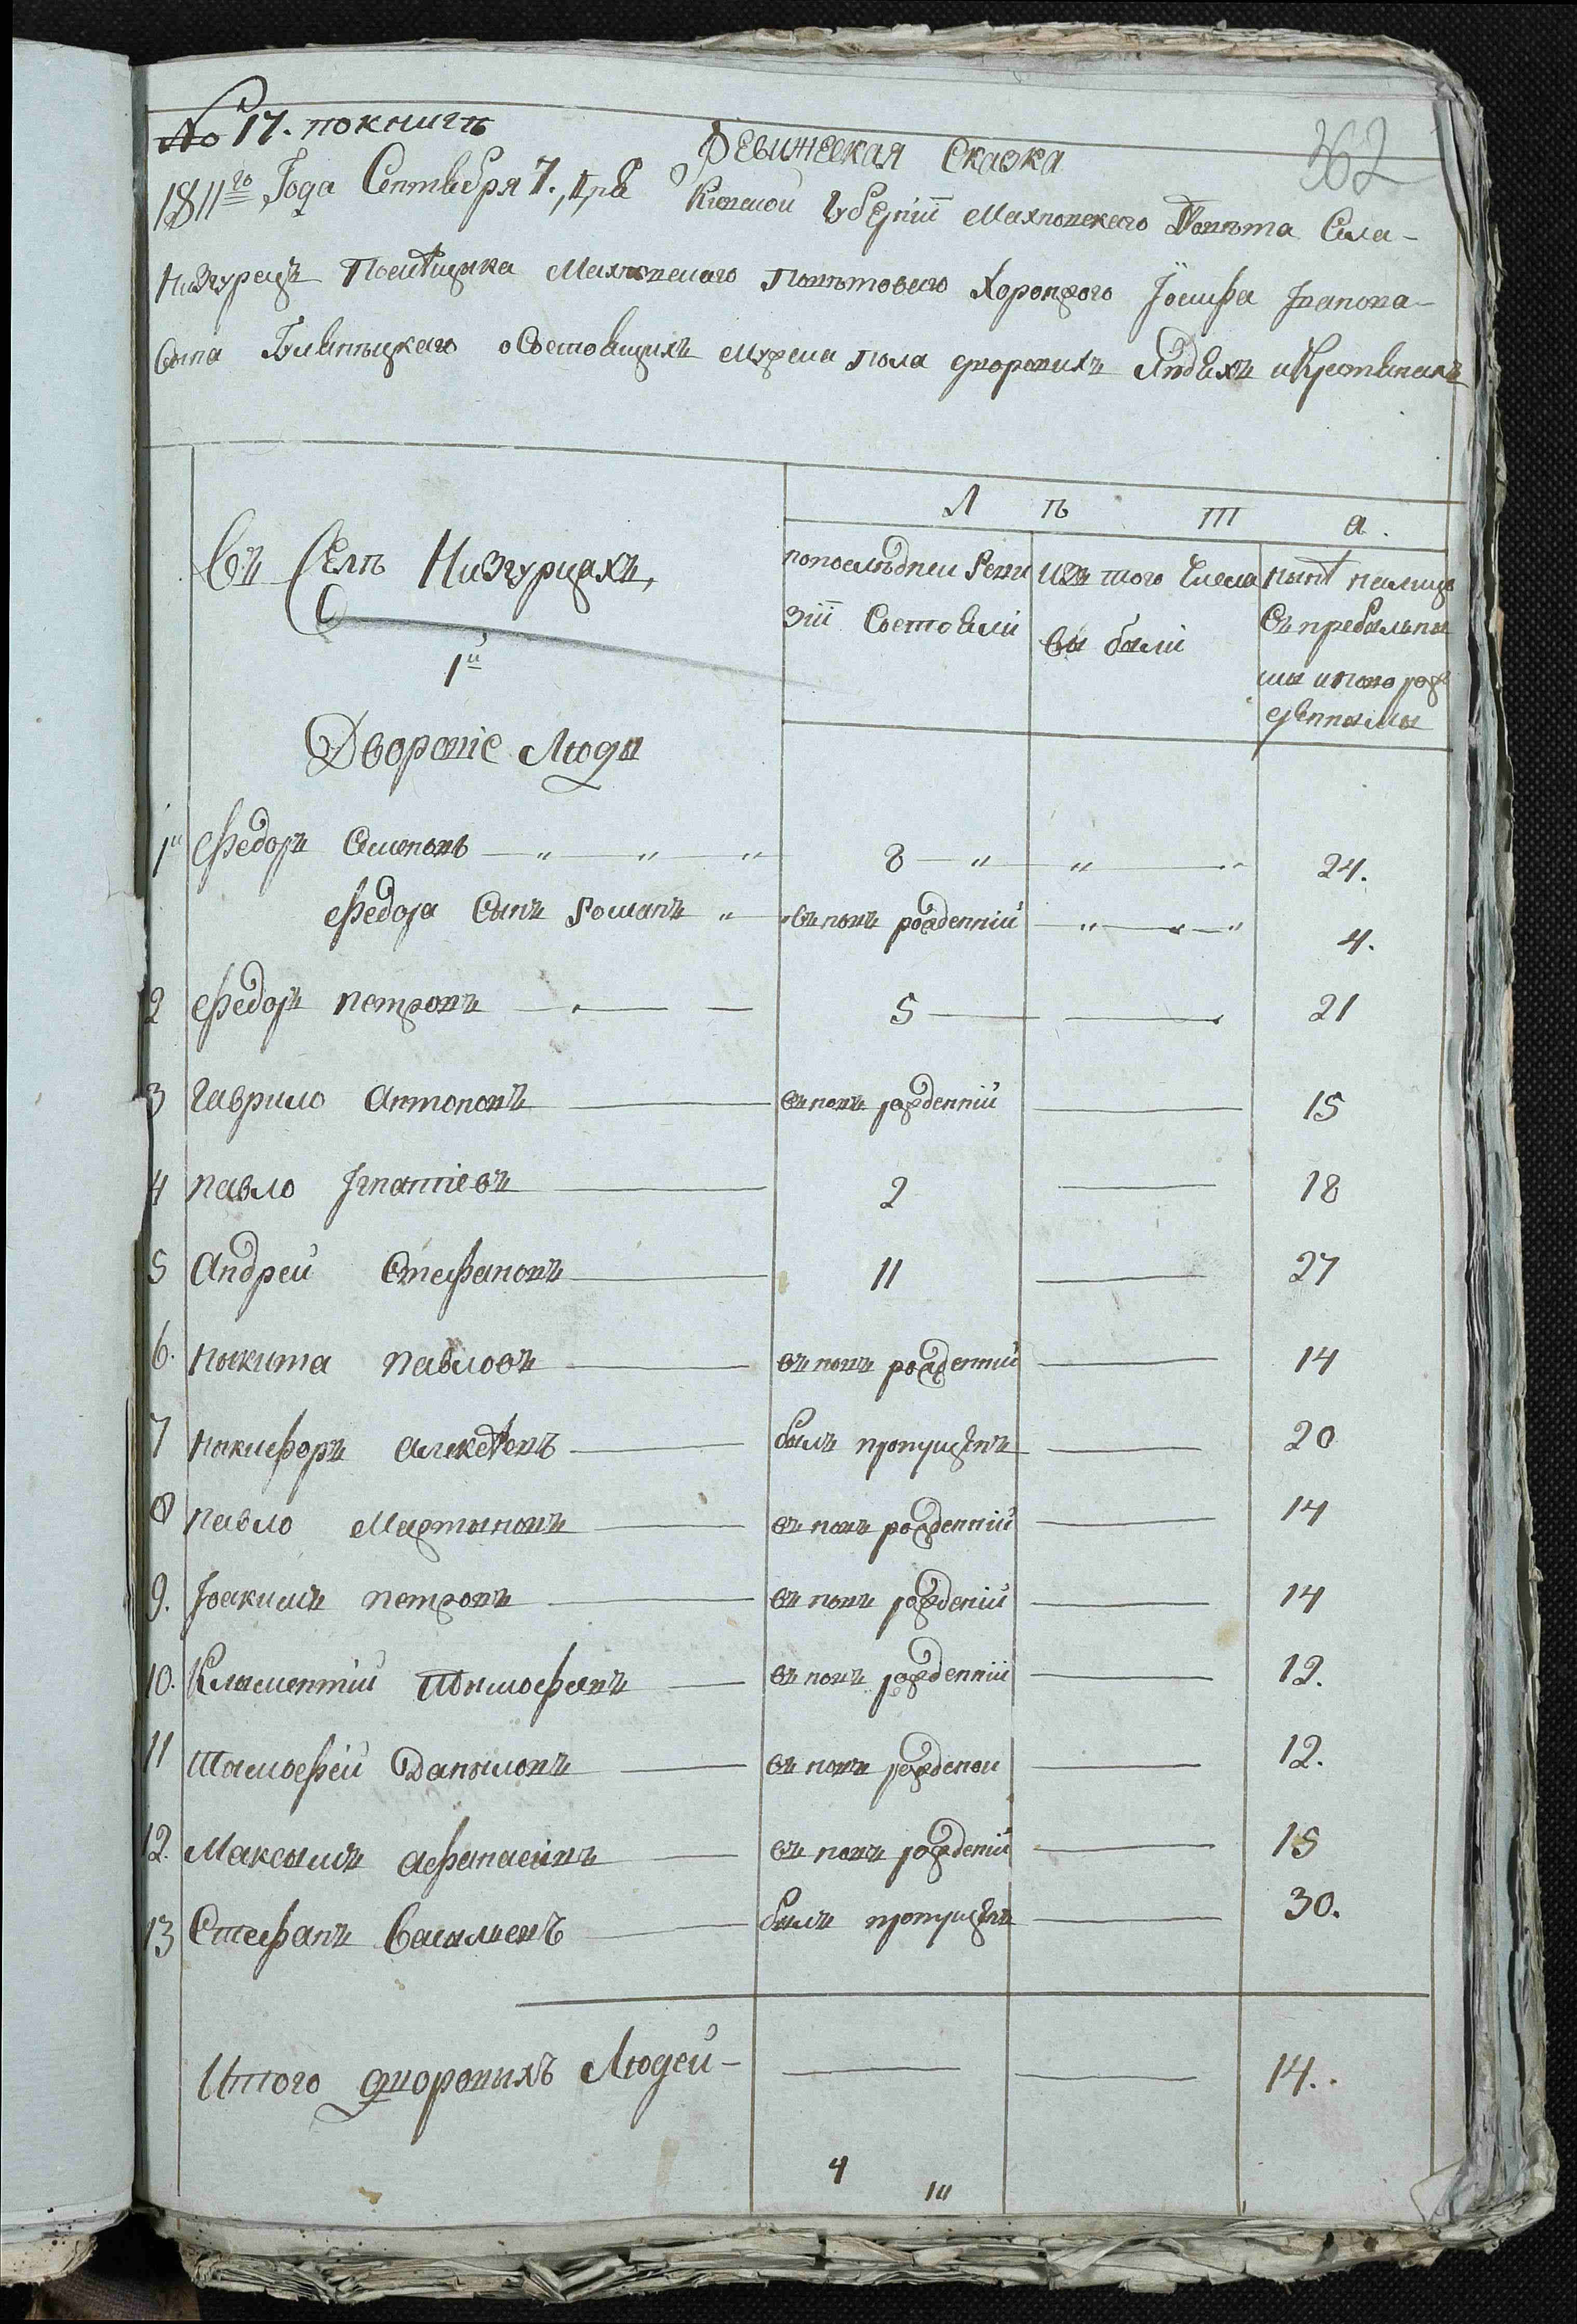 № 17. по книгѣ
362
Ревижская Сказка
1811го Года Сентября 7. дня Киевской Губерніи Махновского Повѣта Села
Низгурецъ Посѣсщика Махновского Повѣтового Хоронжого Іосифа Іванова
Сына о Состоящихъ Мужеска пола дворовихъ Людяхъ и Крестянахъ
Л ѣ т а.
Въ Селѣ Низгурцахъ,
по последней Реви
зіи Состояли
изъ того Числа
вы были
нынѣ налицо
Съ прибылыми
и ново рож
денными
1й
Дворовіе Люди
1й Федоръ Симоновъ — " — " — " 8 — " — " 24.
Федора Сынъ Романъ " въ новъ рожденній — " 4.
2 Федоръ Петровъ — 5 — 21
3 Гаврило Антоновъ — въ новъ рожденній — 15
4 Павло Ігнатіевъ — 2 — 18
5 Андрей Стефановъ — 11 — 27
6. Никита Павловъ — въ новъ рожденній — 14
7 Никифоръ Алексѣевъ — былъ пропущенъ — 20
8 Павло Мартыновъ — въ новъ рожденній — 14
9. Іоакимъ Петровъ — въ новъ рожденій — 14
10. Клыментій Тимофеевъ — въ новъ рожденній — 12.
11 Тимофей Даныловъ — въ новъ рожденой — 12.
12. Максымъ Афанасиевъ — въ новъ рожденій — 15
13 Стефанъ Васильевъ — былъ пропущенъ — 30.
Итого дворовихъ Людей — — — 14..
4